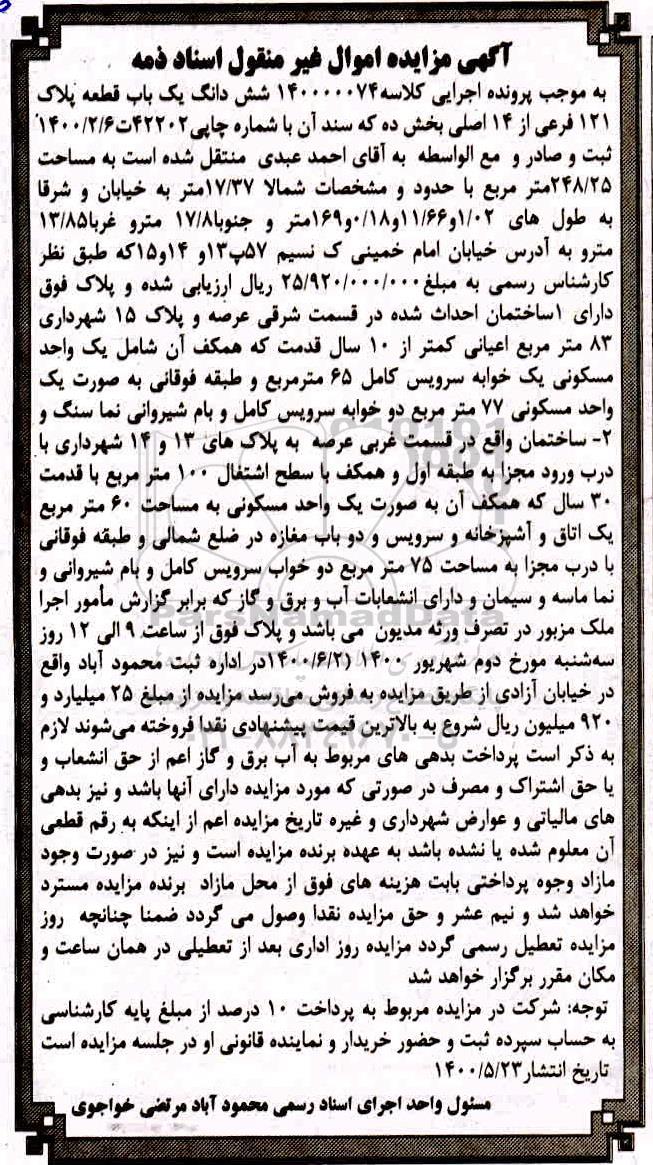 آگهی مزایده اموال غیر منقول اسناد ذمه
به موجب پرونده اجرایی کلاسه۱۴۰۰۰۰۰۷۴ شش دانگ یک باب قطعه پلاک
۱۲۱ فرعی از ۱۴ اصلی بخش ده که سند آن با شماره چاپی۴۲۲۰۲ت۱۴۰۰/۲/۶
ثبت و صادر و مع الواسطه به آقای احمد عبدی منتقل شده است به مساحت
۲۴۸/۲۵متر مربع با حدود و مشخصات شمالا ۱۷/۳۷متر به خیابان و شرقا
به طول های ۱/۰۲و۱۱/۶۶و۰/۱۸و۱۶۹متر و جنوبا۱۷/۸ مترو غربا۱۳/۸۵
مترو به آدرس خیابان امام خمینی ک نسیم ۵۷پ۱۳و ۱۴و۱۵که طبق نظر
کارشناس رسمی به مبلغ۲۵/۹۲۰/۰۰۰/۰۰۰ ریال ارزیابی شده و پلاک فوق
دارای ۱ساختمان احداث شده در قسمت شرقی عرصه و پلاک ۱۵ شهرداری
۸۳ متر مربع اعیانی کمتر از ۱۰ سال قدمت که همکف آن شامل یک واحد
مسکونی یک خوابه سرویس کامل ۶۵ مترمربع و طبقه فوقانی به صورت یک
واحد مسکونی ۷۷ متر مربع دو خوابه سرویس کامل و بام شیروانی نما سنگ و
۲- ساختمان واقع در قسمت غربی عرصه به پلاک های ۱۳ و ۱۴ شهرداری با
درب ورود مجزا به طبقه اول و همکف با سطح اشتغال ۱۰۰ متر مربع با قدمت
۳۰ سال که همکف آن به صورت یک واحد مسکونی به مساحت ۶۰ متر مربع
یک اتاق و آشپزخانه و سرویس و دو باب مغازه در ضلع شمالی و طبقه فوقانی
با درب مجزا به مساحت ۷۵ متر مربع دو خواب سرویس کامل و بام شیروانی و
نما ماسه و سیمان و دارای انشعابات آب و برق و گاز که برابر گزارش مأمور اجرا
ملک مزبور در تصرف ورثه مدیون می باشد و پلاک فوق از ساعت ۹ الی ۱۲ روز
سه‌شنبه مورخ دوم شهریور ۱۴۰۰ (۱۴۰۰/۶/۲در اداره ثبت محمود آباد واقع
در خیابان آزادی از طریق مزایده به فروش می‌رسد مزایده از مبلغ ۲۵ میلیارد و
۹۲۰ میلیون ریال شروع به بالاترین قیمت پیشنهادی نقدا فروخته می‌شوند لازم
به ذکر است پرداخت بدهی های مربوط به آب برق و گاز اعم از حق انشعاب و
یا حق اشتراک و مصرف در صورتی که مورد مزایده دارای آنها باشد و نیز بدهی
های مالیاتی و عوارض شهرداری و غیره تاریخ مزایده اعم از اینکه به رقم قطعی
آن معلوم شده یا نشده باشد به عهده برنده مزایده است و نیز در صورت وجود
مازاد وجوه پرداختی بابت هزینه های فوق از محل مازاد برنده مزایده مسترد
خواهد شد و نیم عشر و حق مزایده نقدا وصول می گردد ضمنا چنانچه روز
مزایده تعطیل رسمی گردد مزایده روز اداری بعد از تعطیلی در همان ساعت و
مکان مقرر برگزار خواهد شد
توجه: شرکت در مزایده مربوط به پرداخت ۱۰ درصد از مبلغ پایه کارشناسی
به حساب سپرده ثبت و حضور خریدار و نماینده قانونی او در جلسه مزایده است
تاریخ انتشار۱۴۰۰/۵/۲۳
مسئول واحد اجرای اسناد رسمی محمود آباد مرتضی خواجوی
ParsNamadData